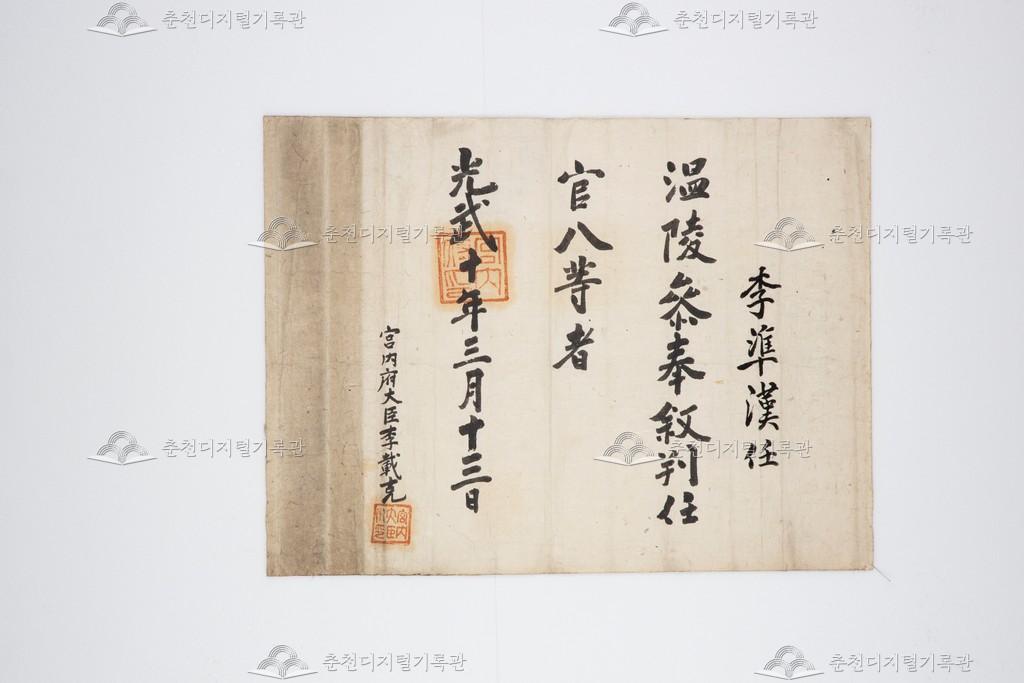 李準漢任
温陵叅奉叙判任
官八等者
光武十年三月十三日
宮内府大臣李載克
춘천디지털기록관
춘천디지털기록관
춘천디지털기록관
춘천디지털기록관
춘천디지털기록관
춘천디지털기록관
춘천디지털기록관
춘천디지털기록관